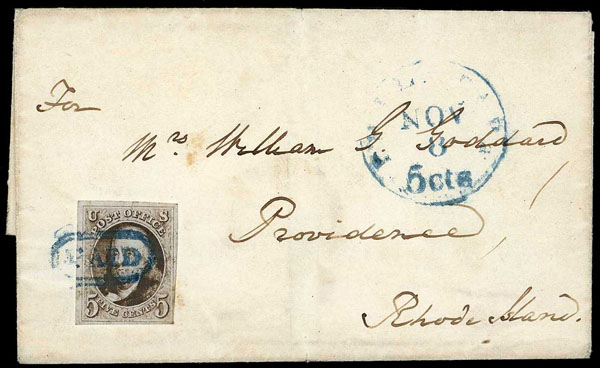 For
Mrs William G. Goddard
Providence,
Rhode Island.
NOV
5cts
U S
POST OFFICE
PAID
5 FIVE CENTS 5